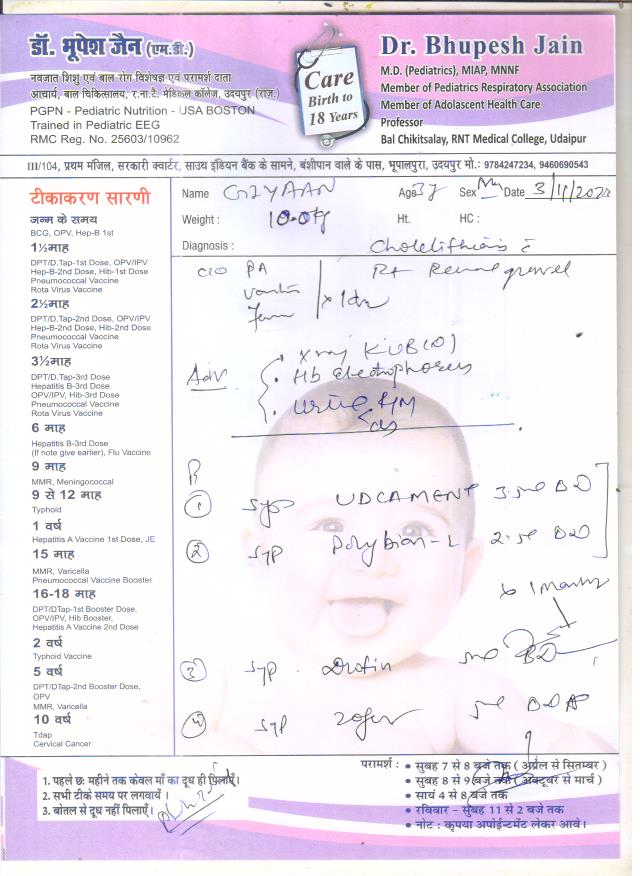 डॉ. भूपेश जैन (एम.डी.)
नवजात शिशु एवं बाल रोग विशेषज्ञ एवं परामर्श दाता
आचार्य, बाल चिकित्सालय, र.ना.टै. मेडिकल कॉलेज, उदयपुर (राज.)
PGPN - Pediatric Nutrition - USA BOSTON
Trained in Pediatric EEG
RMC Reg. No. 25603/10962
Care
Birth to
18 Years
Dr. Bhupesh Jain
M.D. (Pediatrics), MIAP, MNNF
Member of Pediatrics Respiratory Association
Member of Adolascent Health Care
Professor
Bal Chikitsalay, RNT Medical College, Udaipur
III/104, प्रथम मंजिल, सरकारी क्वार्टर, साउथ इडियन बैंक के सामने, बंशीपान वाले के पास, भूपालपुरा, उदयपुर मो.: 9784247234, 9460690543
टीकाकरण सारणी
जन्म के समय
BCG, OPV, Hep-B 1st
1½माह
DPT/D.Tap-1st Dose, OPV/IPV
Hep-B-2nd Dose, Hib-1st Dose
Pneumococcal Vaccine
Rota Virus Vaccine
2½माह
DPT/D.Tap-2nd Dose, OPV/IPV
Hep-B-2nd Dose, Hib-2nd Dose
Pneumococcal Vaccine
Rota Virus Vaccine
3½माह
DPT/D.Tap-3rd Dose
Hepatitis B-3rd Dose
OPV/IPV, Hib-3rd Dose
Pneumococcal Vaccine
Rota Virus Vaccine
6 माह
Hepatitis B-3rd Dose
(If note give earlier), Flu Vaccine
9 माह
MMR, Meningococcal
9 से 12 माह
Typhoid
1 वर्ष
Hepatitis A Vaccine 1st Dose, JE
15 माह
MMR, Varicella
Pneumococcal Vaccine Booster
16-18 माह
DPT/DTap-1st Booster Dose,
OPV/IPV, Hib Booster,
Hepatitis A Vaccine 2nd Dose
2 वर्ष
Typhoid Vaccine
5 वर्ष
DPT/DTap-2nd Booster Dose,
OPV
MMR, Varicella
10 वर्ष
Tdap
Cervical Cancer
Name GIYAAN Age 3y Sex Date 3/11/
Weight : 10.0 kg Ht. HC :
Diagnosis : Cholelithiasis c
Rt Renal gravel
c/o PA
Adv
Xray KUB
Hb Electrophoresis
Urine R/M
R
1 Syp UDCAMENT 3.5ml BD
2 Syp Polybion-L 2.5ml BD
3 Syp. 5ml BD
4 Syp Zofer 5ml
1. पहले छः महीने तक केवल माँ का दूध ही पिलाएँ।
2. सभी टीके समय पर लगवायें ।
3. बोतल से दूध नहीं पिलाएँ।
परामर्श : • सुबह 7 से 8 बजे तक ( अप्रेल से सितम्बर )
• सुबह 8 से 9 बजे तक ( अक्टूबर से मार्च )
• सायं 4 से 8 बजे तक
• रविवार – सुबह 11 से 2 बजे तक
• नोट : कृपया अपोईन्टमेंट लेकर आवे।